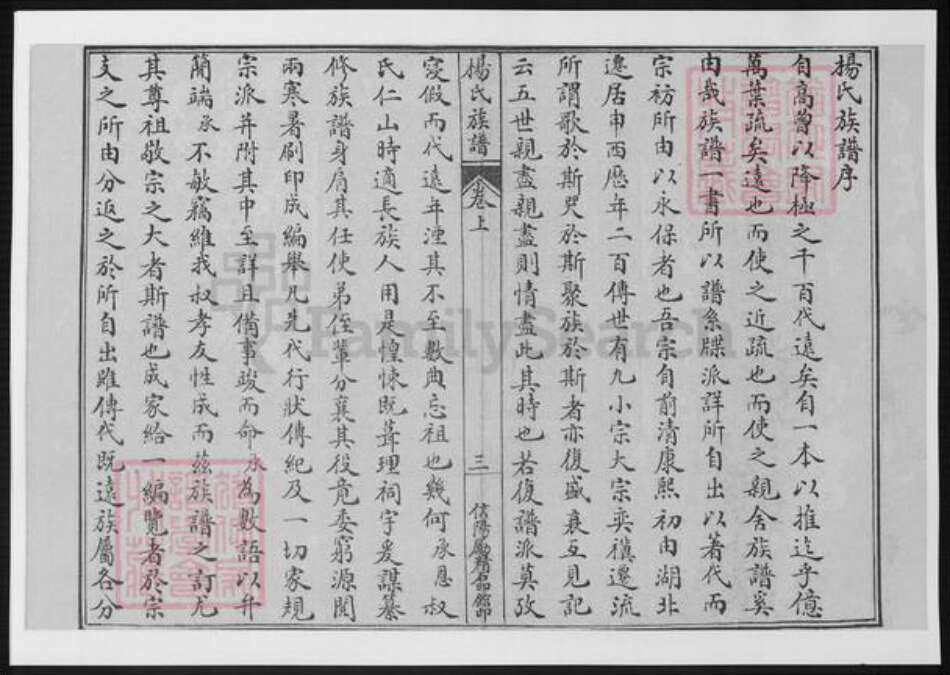 楊氏族譜序
自高曾以降極之千百代遠矣自一本以推迄乎億
萬葉疏矣遠也而使之近疏也而使之親舍族譜奚
由哉族譜一書所以譜系牒派詳所自出以著代而
宗祊所由以永保者也吾宗自前清康熙初由湖北
遷居申西歷年二百傳世有九小宗大宗奕禩遷流
所謂歌於斯哭於斯聚族於斯者亦復盛衰互見記
云五世親盡親盡則情盡此其時也若復譜派莫攷
楊氏族譜 卷上 三 信陽勵精石印館印
寖假而代遠年湮其不至數典忘祖也幾何承恩叔
氏仁山時適長族人用是惶悚既葺理祠宇爰謀纂
修族譜身肩其任使弟侄輩分襄其役竟委窮源閱
兩寒暑刷印成編舉凡先代行狀傳紀及一切家規
宗派并附其中至詳且備事竣而命承為數語以弁
簡端承不敏竊維我叔孝友性成而茲族譜之訂尤
其尊祖敬宗之大者斯譜也成家給一編覽者於宗
支之所由分返之於所自出雖傳代既遠族屬各分
FamilySearch